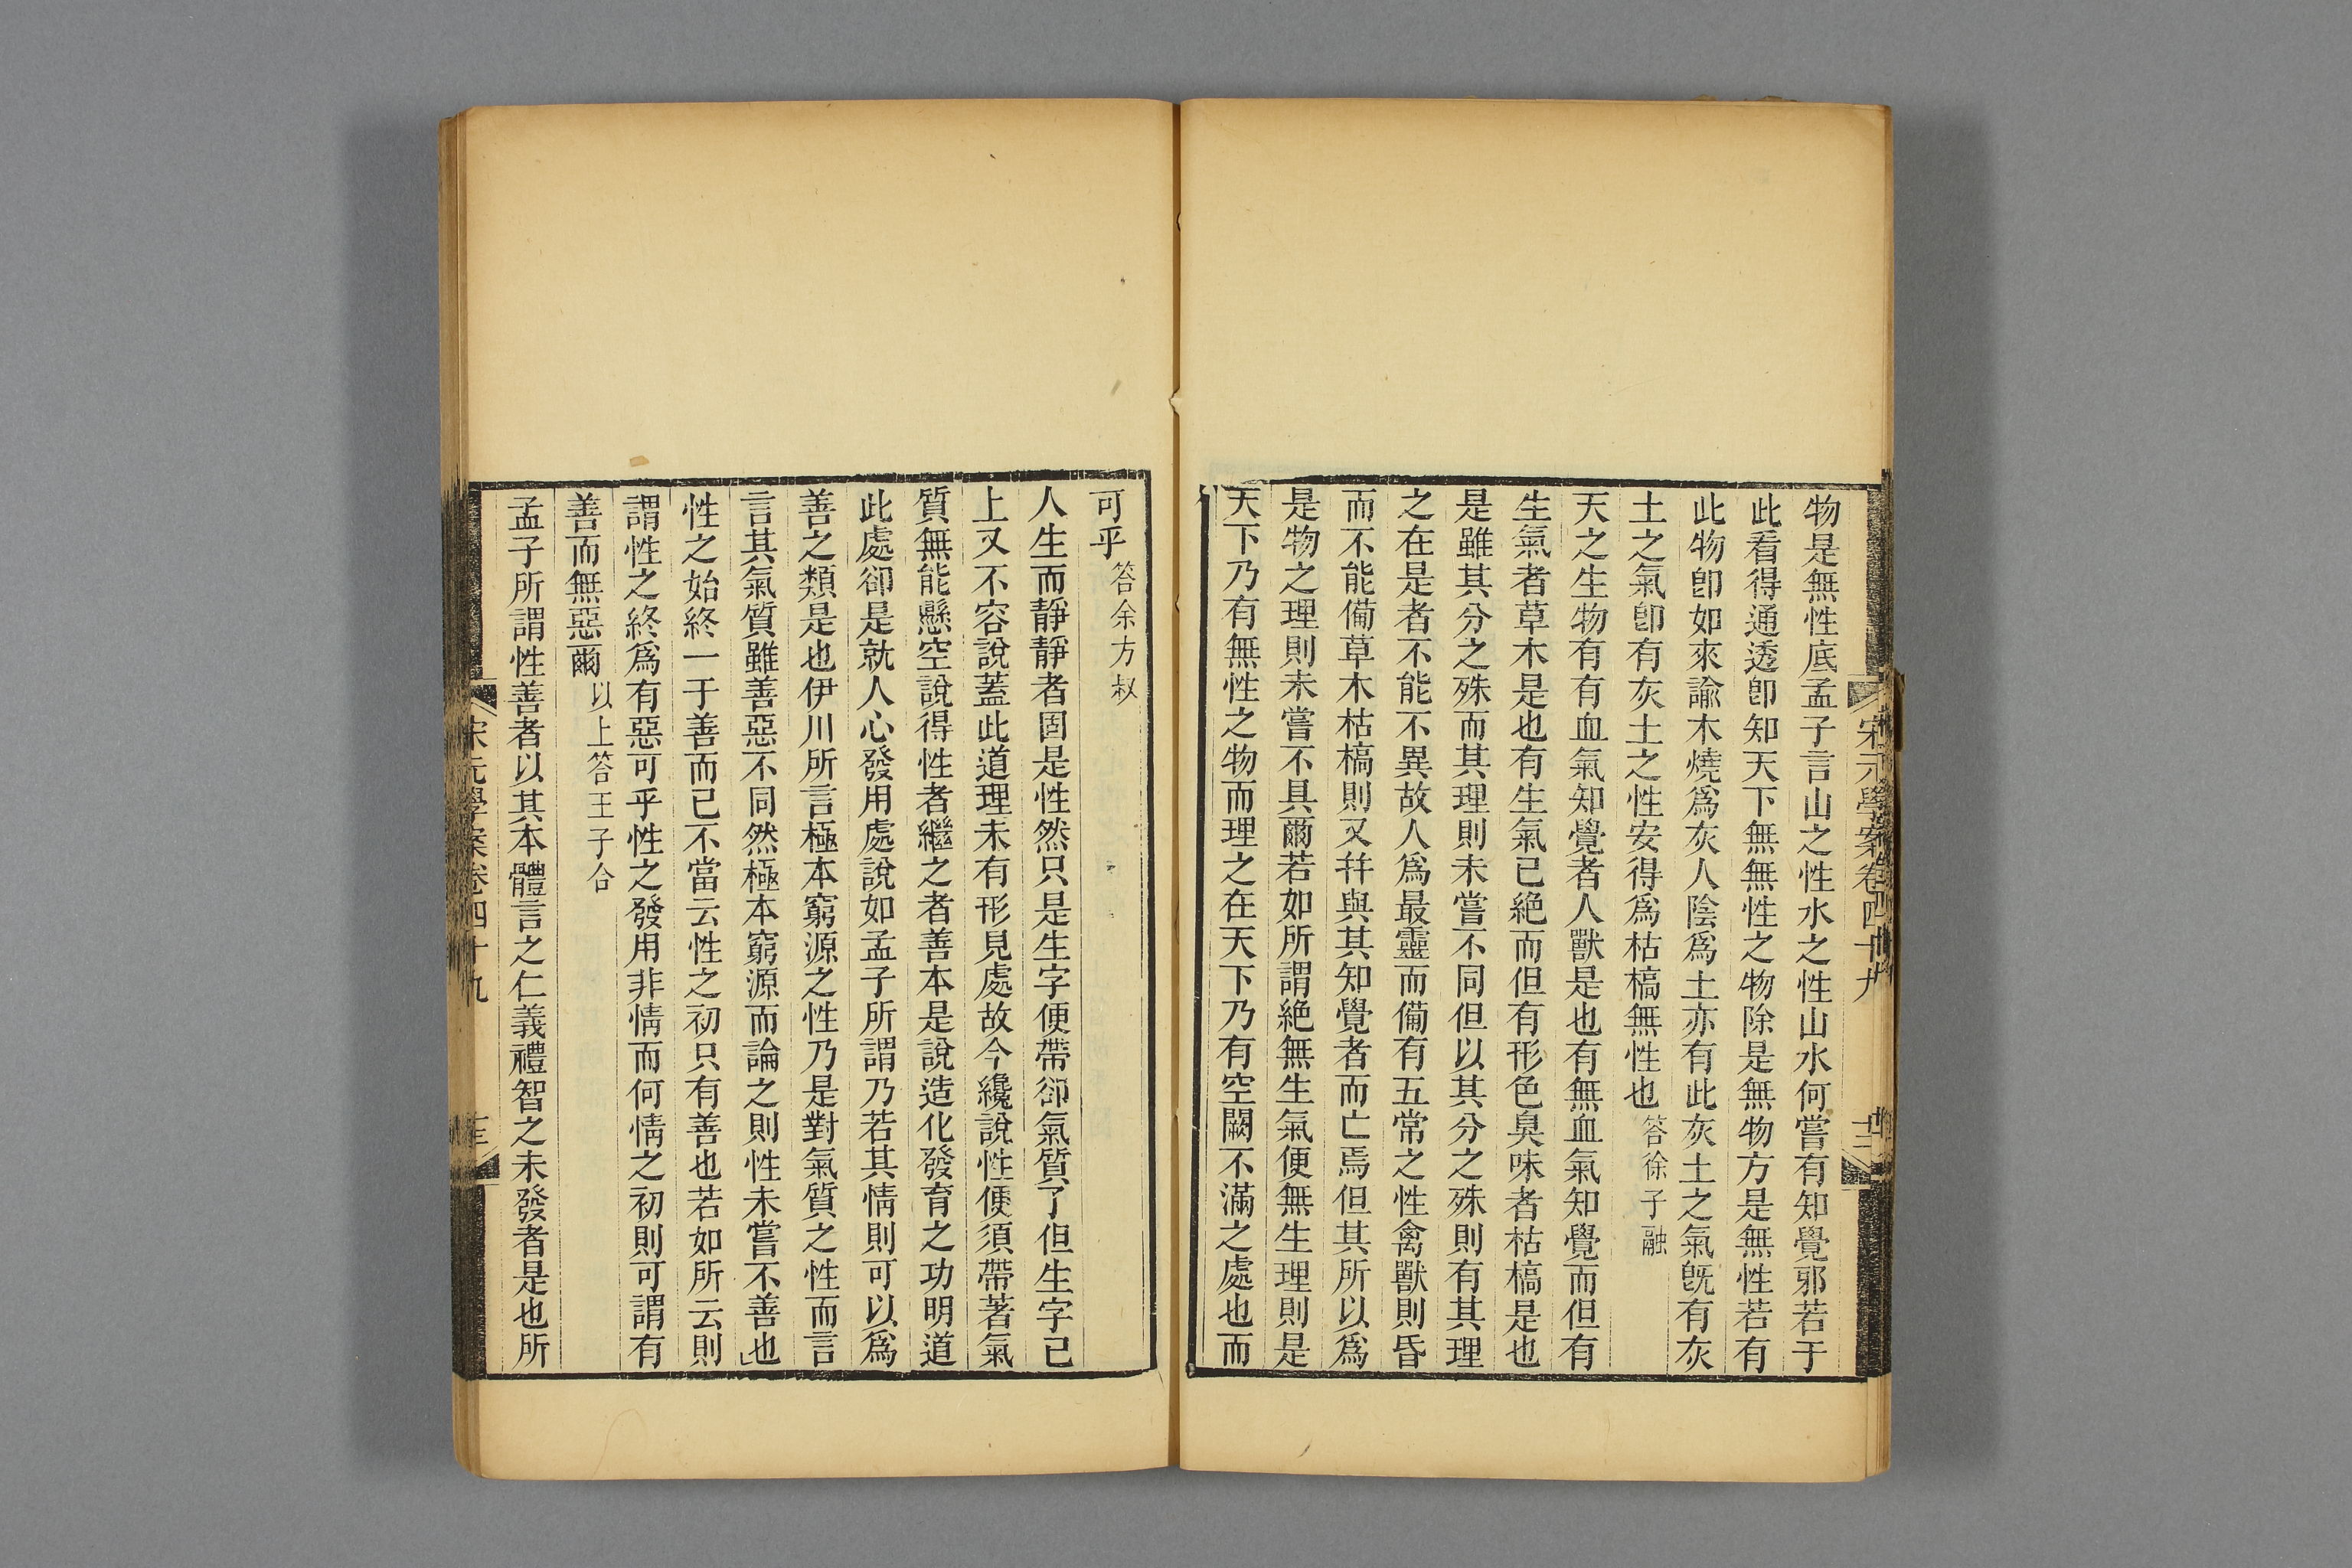 宋元學案卷四十九
物是無性底孟子言山之性水之性山水何嘗有知覺邪若于
此看得通透卽知天下無無性之物除是無物方是無性若有
此物卽如來諭木燒爲灰人陰爲土亦有此灰土之氣旣有灰
土之氣卽有灰土之性安得爲枯槁無性也答徐子融
天之生物有有血氣知覺者人獸是也有無血氣知覺而但有
生氣者草木是也有生氣已絕而但有形色臭味者枯槁是也
是雖其分之殊而其理則未嘗不同但以其分之殊則有其理
之在是者不能不異故人爲最靈而備有五常之性禽獸則昏
而不能備草木枯槁則又幷與其知覺者而亡焉但其所以爲
是物之理則未嘗不具爾若如所謂絕無生氣便無生理則是
天下乃有無性之物而理之在天下乃有空闕不滿之處也而
可乎答余方叔
人生而靜靜者固是性然只是生字便帶卻氣質了但生字已
上又不容說蓋此道理未有形見處故今纔說性便須帶著氣
質無能懸空說得性者繼之者善本是說造化發育之功明道
此處卻是就人心發用處說如孟子所謂乃若其情則可以爲
善之類是也伊川所言極本窮源之性乃是對氣質之性而言
言其氣質雖善惡不同然極本窮源而論之則性未嘗不善也
性之始終一于善而已不當云性之初只有善也若如所云則
謂性之終爲有惡可乎性之發用非情而何情之初則可謂有
善而無惡爾以上答王子合
孟子所謂性善者以其本體言之仁義禮智之未發者是也所
宋元學案卷四十九